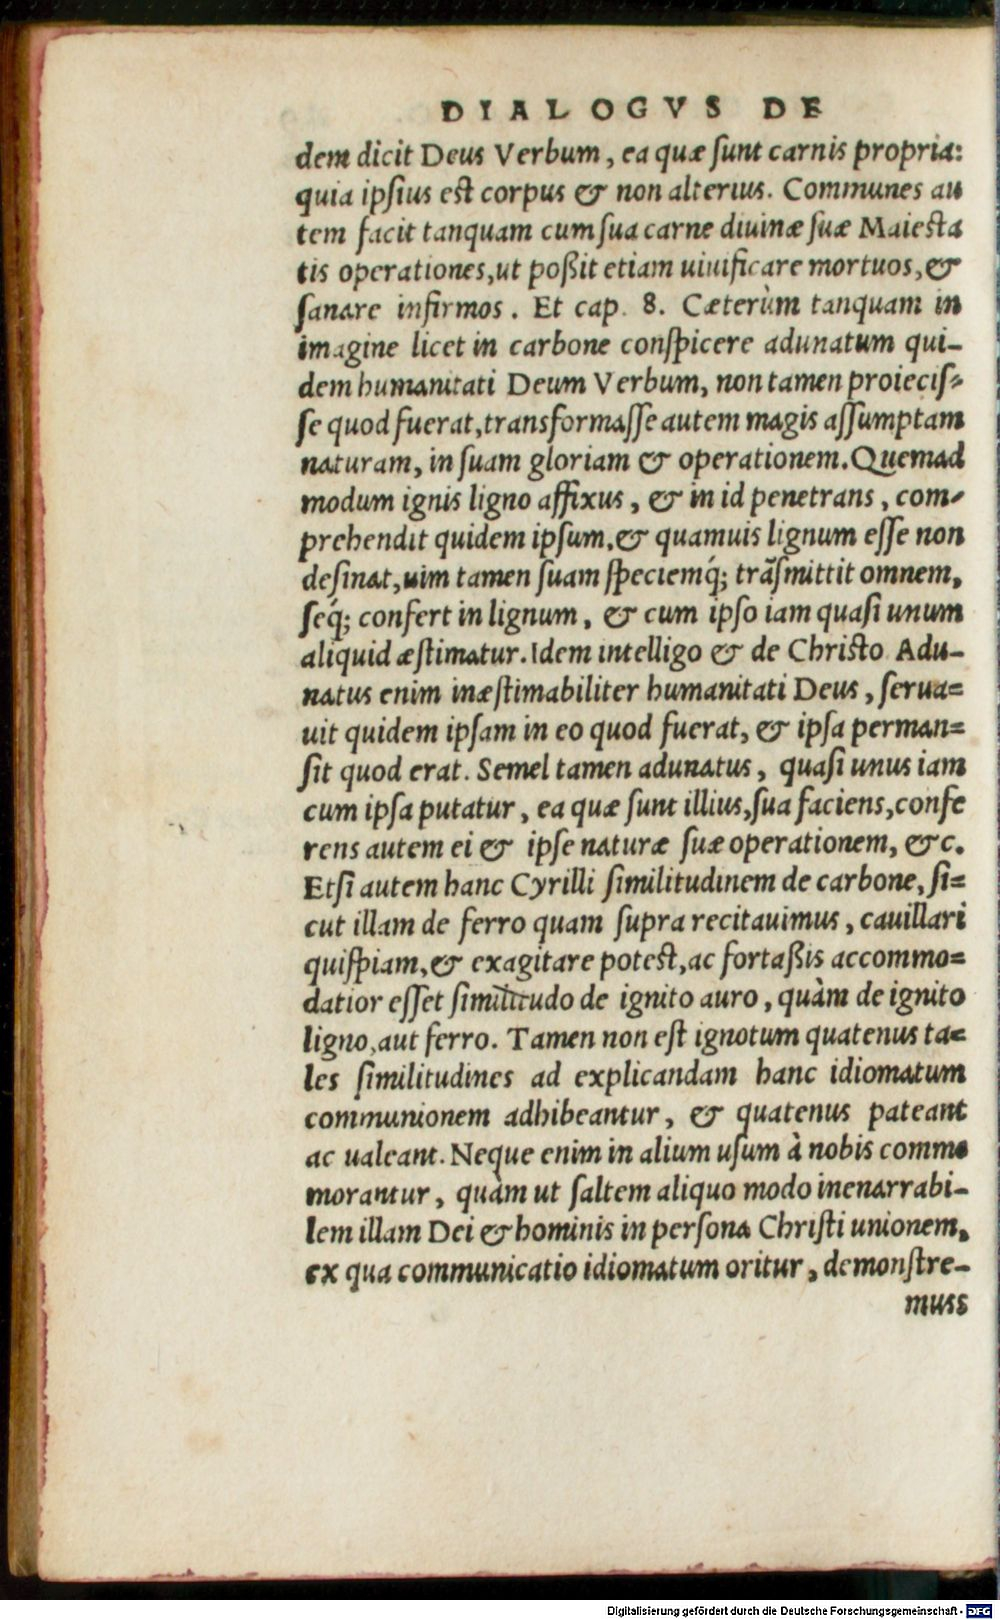 DIALOGVS DE
dem dicit Deus Verbum, ea quæ ſunt carnis propria:
quia ipſius eſt corpus & non alterius. Communes au
tem facit tanquam cum ſua carne diuinæ ſuæ Maieſta
tis operationes, ut poßit etiam uiuificare mortuos, &
ſanare infirmos. Et cap. 8. Cæterùm tanquam in
imagine licet in carbone conſpicere adunatum qui-
dem humanitati Deum Verbum, non tamen proieciſ-
ſe quod fuerat, transformaſſe autem magis aſſumptam
naturam, in ſuam gloriam & operationem. Quemad
modum ignis ligno affixus, & in id penetrans, com-
prehendit quidem ipſum, & quamuis lignum eſſe non
deſinat, uim tamen ſuam ſpeciemq́; trãſmittit omnem,
ſeq́; confert in lignum, & cum ipſo iam quaſi unum
aliquid æſtimatur. Idem intelligo & de Chriſto Adu-
natus enim inæſtimabiliter humanitati Deus, ſerua=
uit quidem ipſam in eo quod fuerat, & ipſa perman=
ſit quod erat. Semel tamen adunatus, quaſi unus iam
cum ipſa putatur, ea quæ ſunt illius, ſua faciens, confe
rens autem ei & ipſe naturæ ſuæ operationem, &c.
Etſi autem hanc Cyrilli ſimilitudinem de carbone, ſi=
cut illam de ferro quam ſupra recitauimus, cauillari
quiſpiam, & exagitare poteſt, ac fortaßis accommo=
datior eſſet ſimilitudo de ignito auro, quàm de ignito
ligno, aut ferro. Tamen non eſt ignotum quatenus ta=
les ſimilitudines ad explicandam hanc idiomatum
communionem adhibeantur, & quatenus pateant
ac ualeant. Neque enim in alium uſum à nobis comme
morantur, quàm ut ſaltem aliquo modo inenarrabi-
lem illam Dei & hominis in perſona Chriſti unionem,
ex qua communicatio idiomatum oritur, demonſtre-
muss
Digitalisierung gefördert durch die Deutsche Forschungsgemeinschaft - DFG